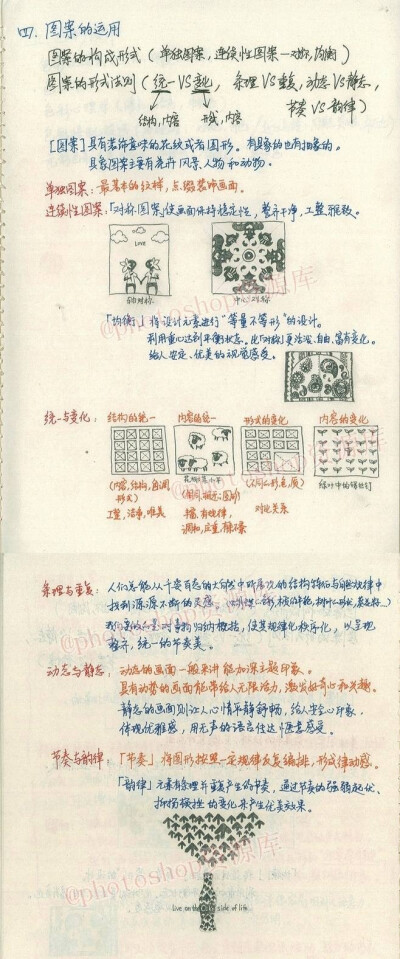 四. 图案的运用
图案的构成形式 ( 单独图案, 连续性图案—对称, 均衡 )
图案的形式法则 ( 统一 VS 变化, 条理 VS 重复, 动态 VS 静态,
节奏 VS 韵律 )
结构, 内容 形式, 内容
[图案] 具有装饰意味的花纹或者图形。有具象的也有抽象的。
具象图案主要有花卉风景、人物和动物。
单独图案: 最基本的纹样, 点缀装饰画面。
连续性图案:「对称图案」使画面保持稳定性, 整齐干净, 工整雅致。
LOVE
轴对称 中心对称
「均衡」将设计元素进行“等量不等形”的设计。
利用重心达到平衡状态。比「对称」更活泼、自由、富有变化。
给人安定、优美的视觉感受。
统一与变化: 结构的统一 内容的统一 形式的变化 内容的变化
(内容, 结构, 色调 形式)
工整, 洁净, 唯美
丰富, 有规律,
调和, 庄重, 静
对比关系
绿叶中的
条理与重复: 人们总能从千姿百态的大自然中所层次的结构特征与自然规律中
找到源源不断的灵感。
对事物归纳概括, 使其规律化秩序化, 以呈现
整齐, 统一的节奏美。
动态与静态: 动态的画面一般来讲能加深主题印象。
具有动势的画面能带给人无限活力, 激发好奇心和兴趣。
静态的画面则让人心情平静舒畅, 给人安心印象。
体现优雅感, 用无声的语言传达惬意感受。
节奏与韵律:「节奏」将图形按照一定规律反复编排, 形式律动感。
「韵律」元素有条理并重复产生的节奏, 通过节奏的强弱起伏、
抑扬顿挫的变化来产生优美效果。
live on the side of life
@photoshop资源库
@photoshop资源库
@photoshop资源库
@photoshop资源库